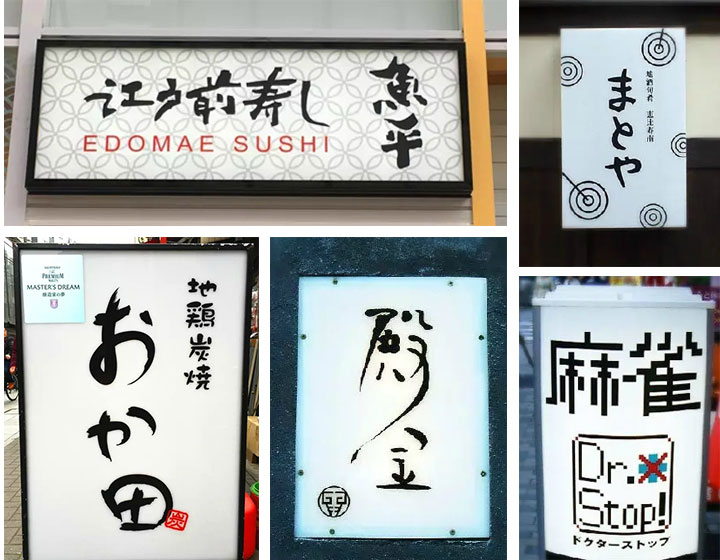 江戸前寿し
EDOMAE SUSHI
魚平
地酒旬肴 恵比寿南
まとや
THE PREMIUM MALT'S
MASTER'S DREAM
醸造家の夢
地鶏炭焼
おか田
炭
殿金
麻雀
Dr.
Stop!
ドクターストップ